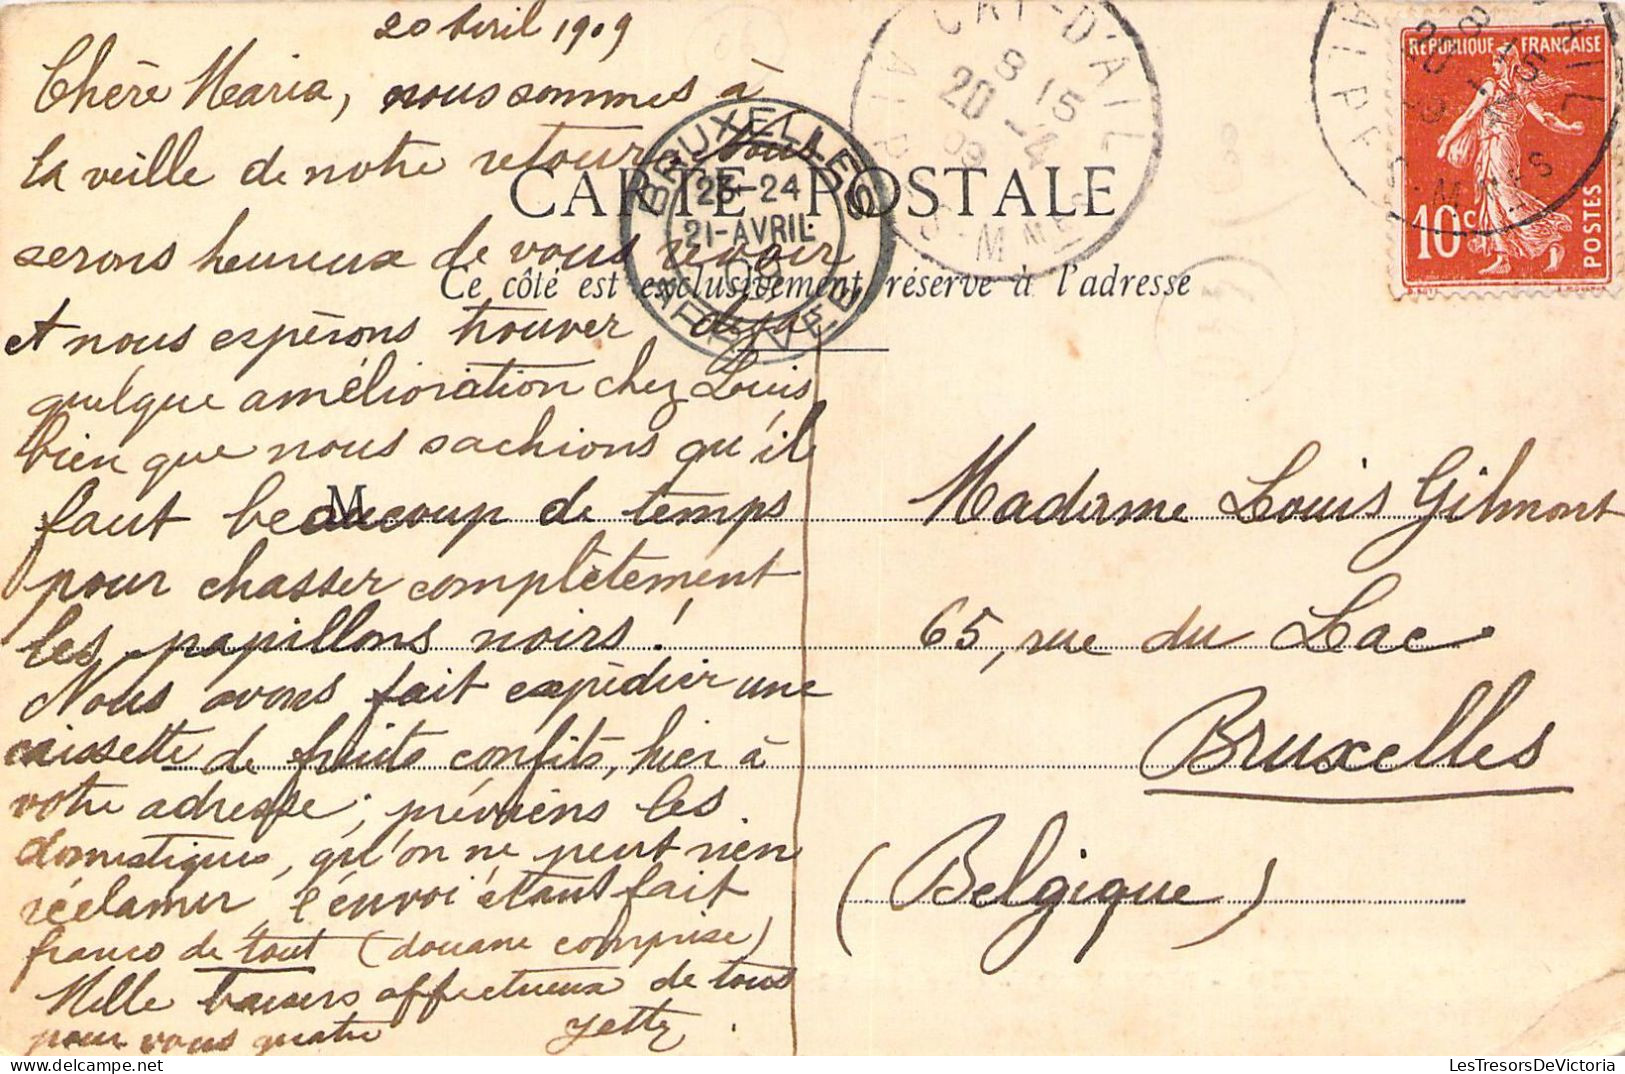 20 Avril 1909
Chère Maria, nous sommes à
la veille de notre retour, tous
serons heureux de vous revoir
et nous espérons trouver déjà
quelque amélioration chez Louis
bien que nous sachions qu'il
faut beaucoup de temps
pour chasser complètement
les papillons noirs !
Nous avons fait expédier une
caissette de fruits confits, hier à
votre adresse ; préviens les
domestiques, qu'on ne peut rien
réclamer, l'envoi étant fait
franco de tout (douane comprise)
Mille baisers affectueux de tous
pour vous quatre
Jetty.
CARTE POSTALE
Ce côté est exclusivement réservé à l'adresse
M
Madame Louis Gilmont
65, rue du Lac
Bruxelles
(Belgique)
BRUXELLES
23-24
21-AVRIL
09
D'AIL
8 15
20 -4
09
ALP S-MMES
RÉPUBLIQUE FRANÇAISE
10c
POSTES
LesTresorsDeVictoria